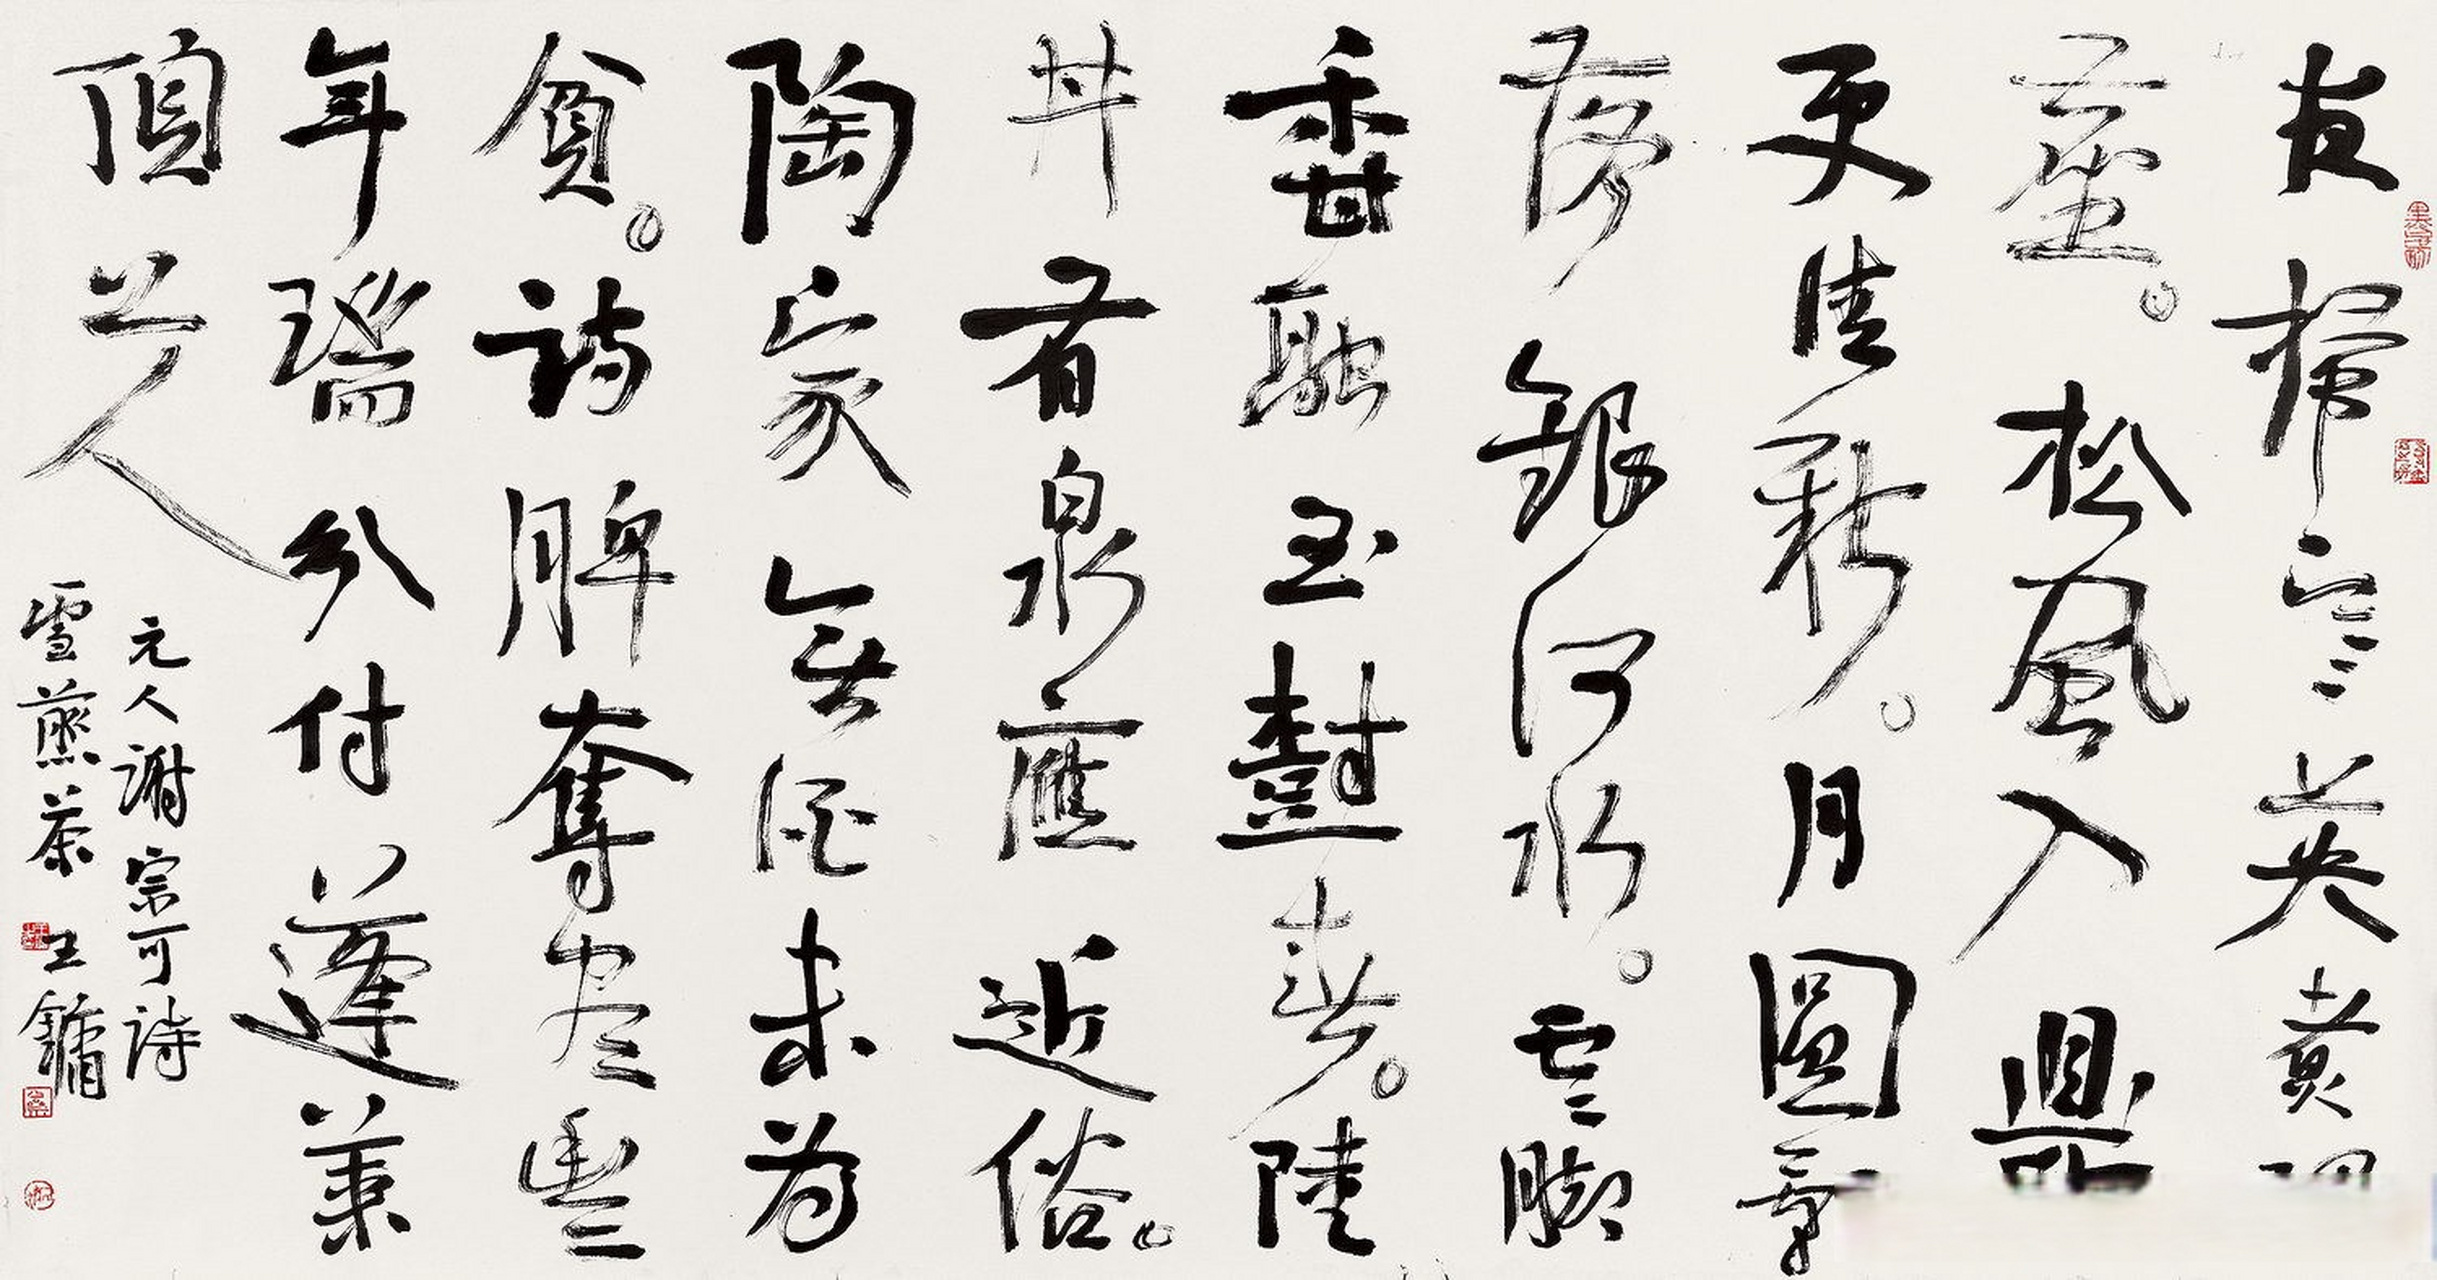 夜掃寒英煮
塵。松風入鼎
更清新。月圓影
落銀河水。雲脚
香融玉樹春。陸
井有泉應近俗。
陶家無酒未為
貧。詩脾奪尽豐
年瑞分付蓬萊
頂上人
元人謝宗可詩
雪煎茶 王鏞